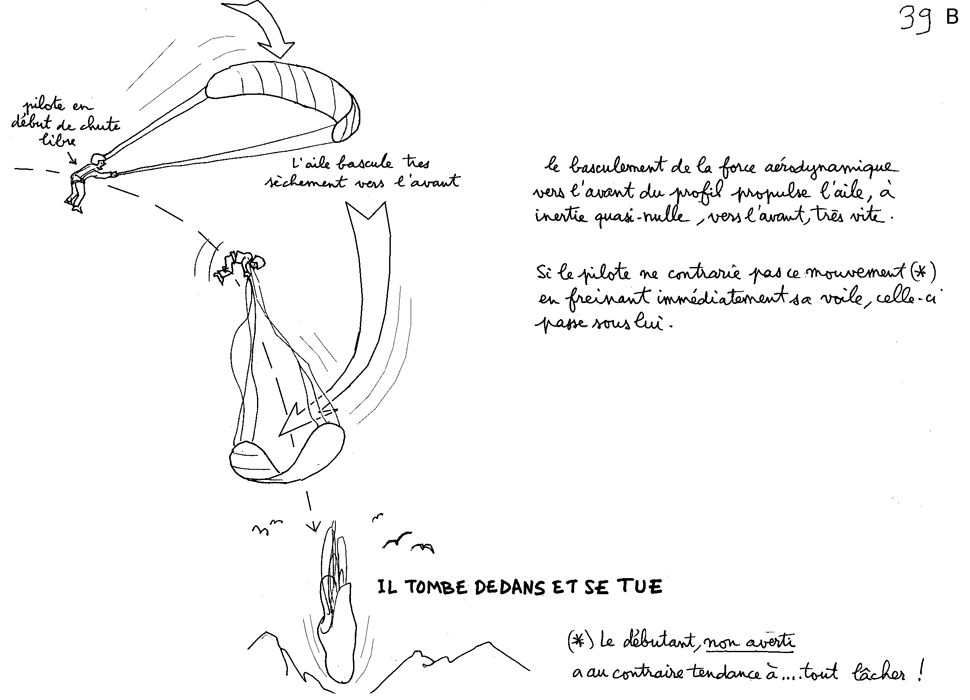 39 B
pilote en
début de chute
libre
L'aile bascule tres
sèchement vers l'avant
le basculement de la force aérodynamique
vers l'avant du profil propulse l'aile, à
inertie quasi-nulle, vers l'avant, très vite.
Si le pilote ne contrarie pas ce mouvement (*)
en freinant immédiatement sa voile, celle-ci
passe sous lui.
IL TOMBE DEDANS ET SE TUE
(*) Le débutant, non averti
a au contraire tendance à....tout lâcher !